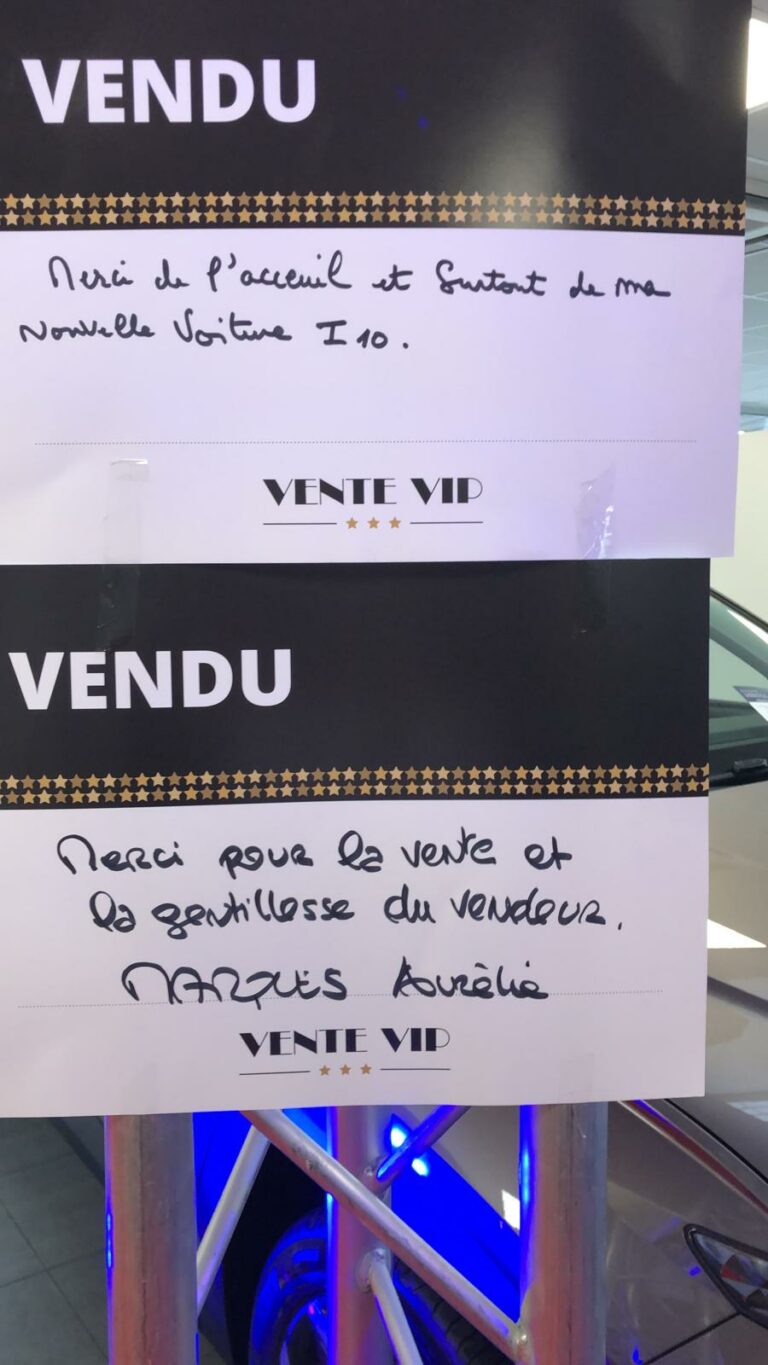 VENDU
Merci de l'acceuil et Surtout de ma
Nouvelle Voiture I10.
VENTE VIP
VENDU
Merci pour la vente et
la gentillesse du vendeur.
MARQUES Aurélie
VENTE VIP